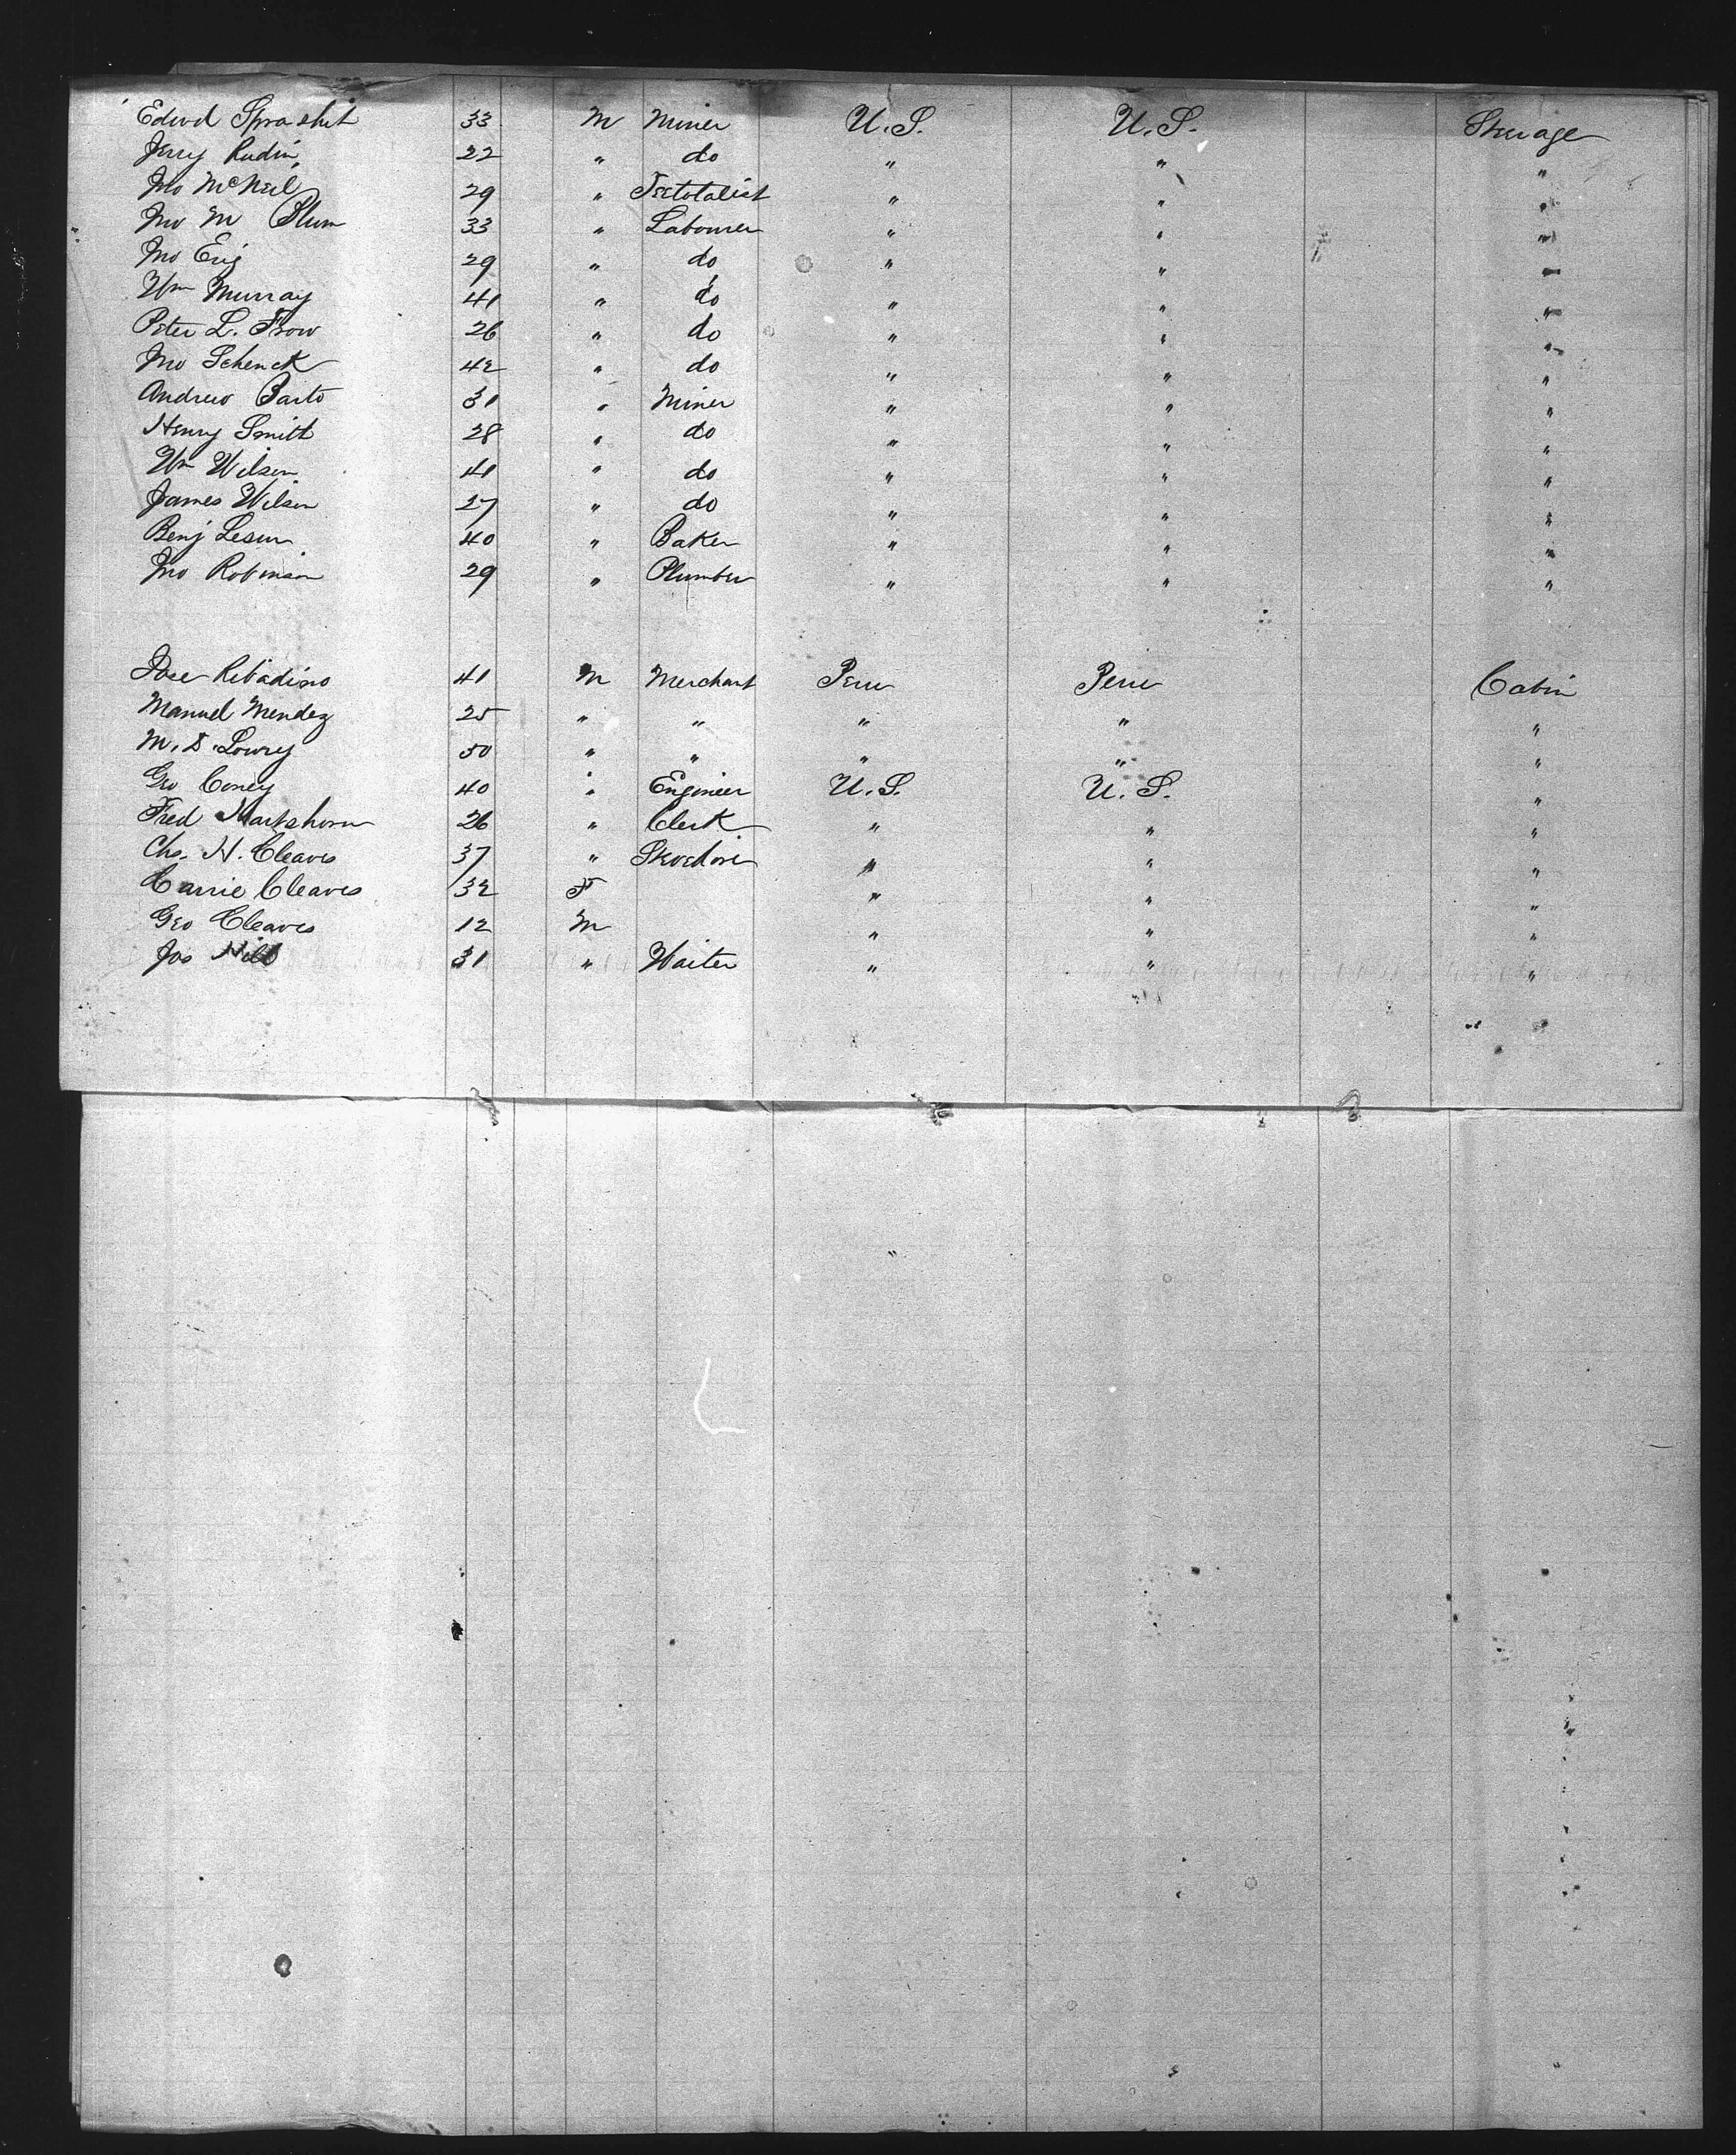 Edwd 33 M Miner U.S. U.S. Steerage
Jerry Rudin 22 " do " " "
Jno McNeil 29 " Teetotalist " " "
Jno M Blum 33 " Labourer " " "
Jno Erig 29 " do " " "
Wm Murray 41 " do " " "
Peter L. Frow 26 " do " " "
Jno Schenck 42 " do " " "
Andrew Barto 31 " Miner " " "
Henry Smith 28 " do " " "
Wm Wilson 41 " do " " "
James Wilson 27 " do " " "
Benj Lesur 40 " Baker " " "
Jno Robinson 29 " Plumber " " "
Jose Ribadino 41 M Merchant Peru Peru Cabin
Manuel Mendez 25 " " " " "
M. S. Lowry 50 " " " " "
Geo Coney 40 " Engineer U.S. U.S. "
Fred Hartshorn 26 " Clerk " " "
Chs. H. Cleaves 37 " Stevedore " " "
Carrie Cleaves 32 F " " "
Geo Cleaves 12 M " " "
Jos Hill 31 " Waiter " " "